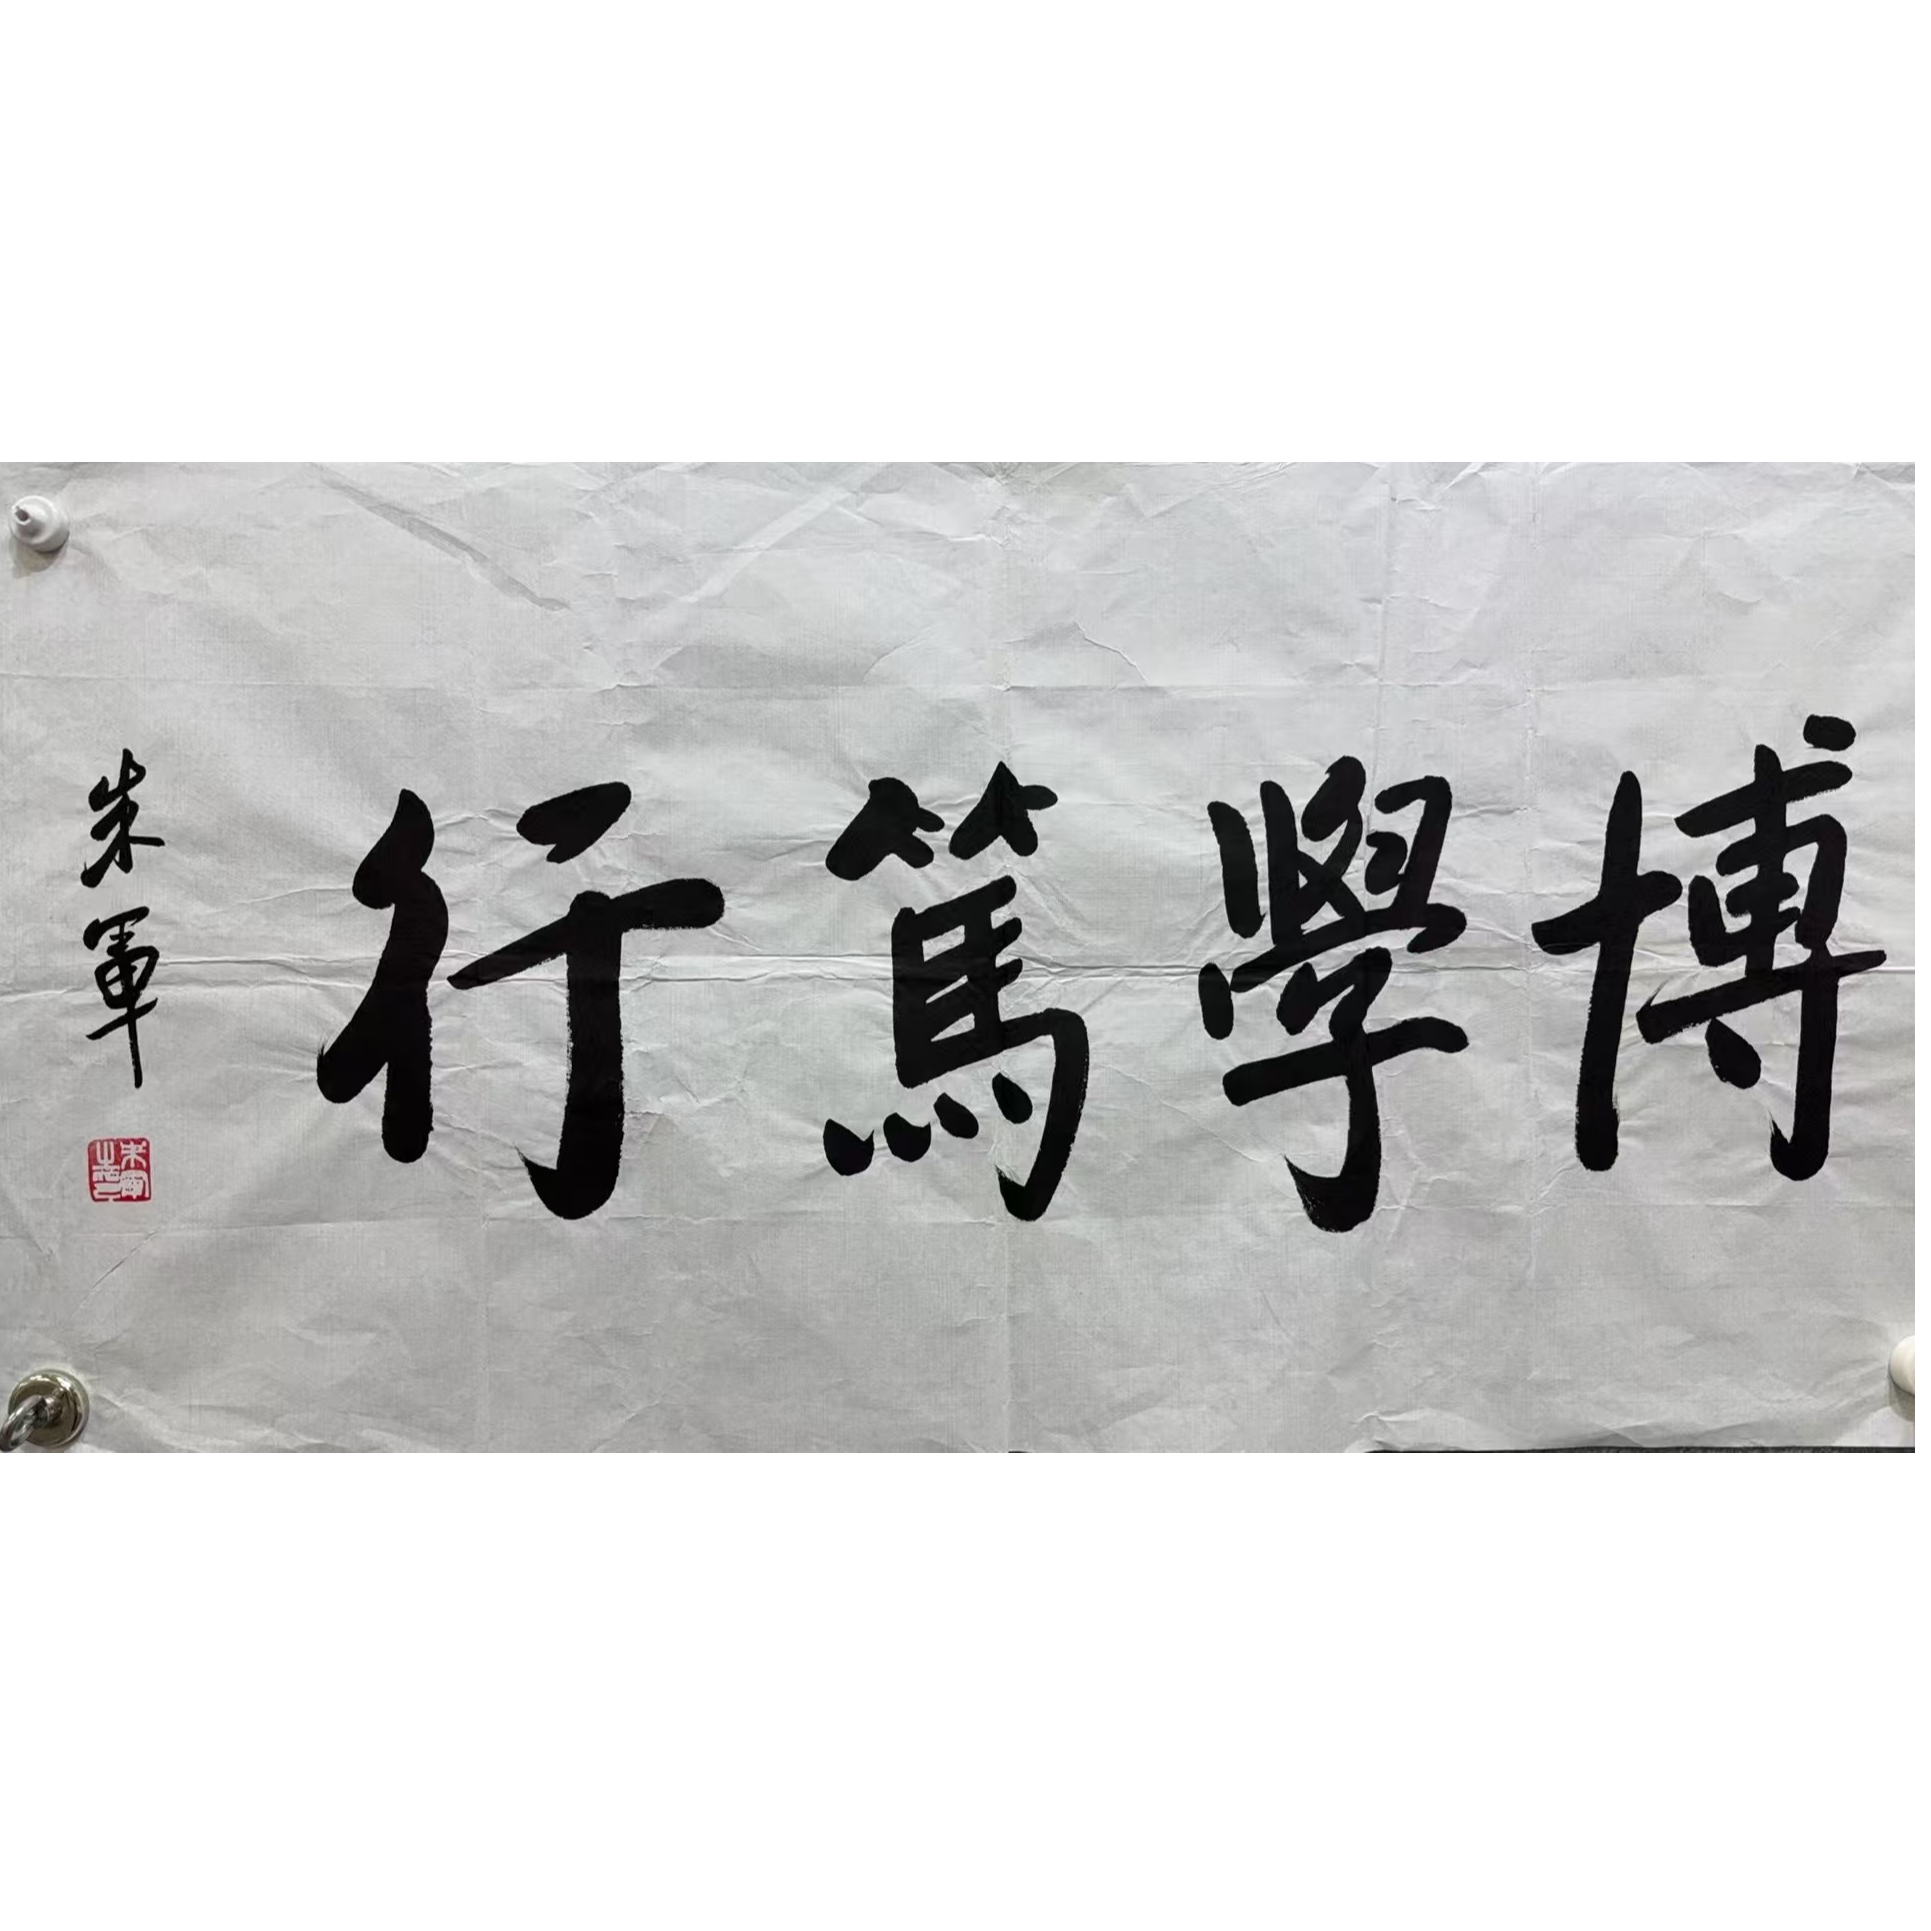 博學篤行
朱軍